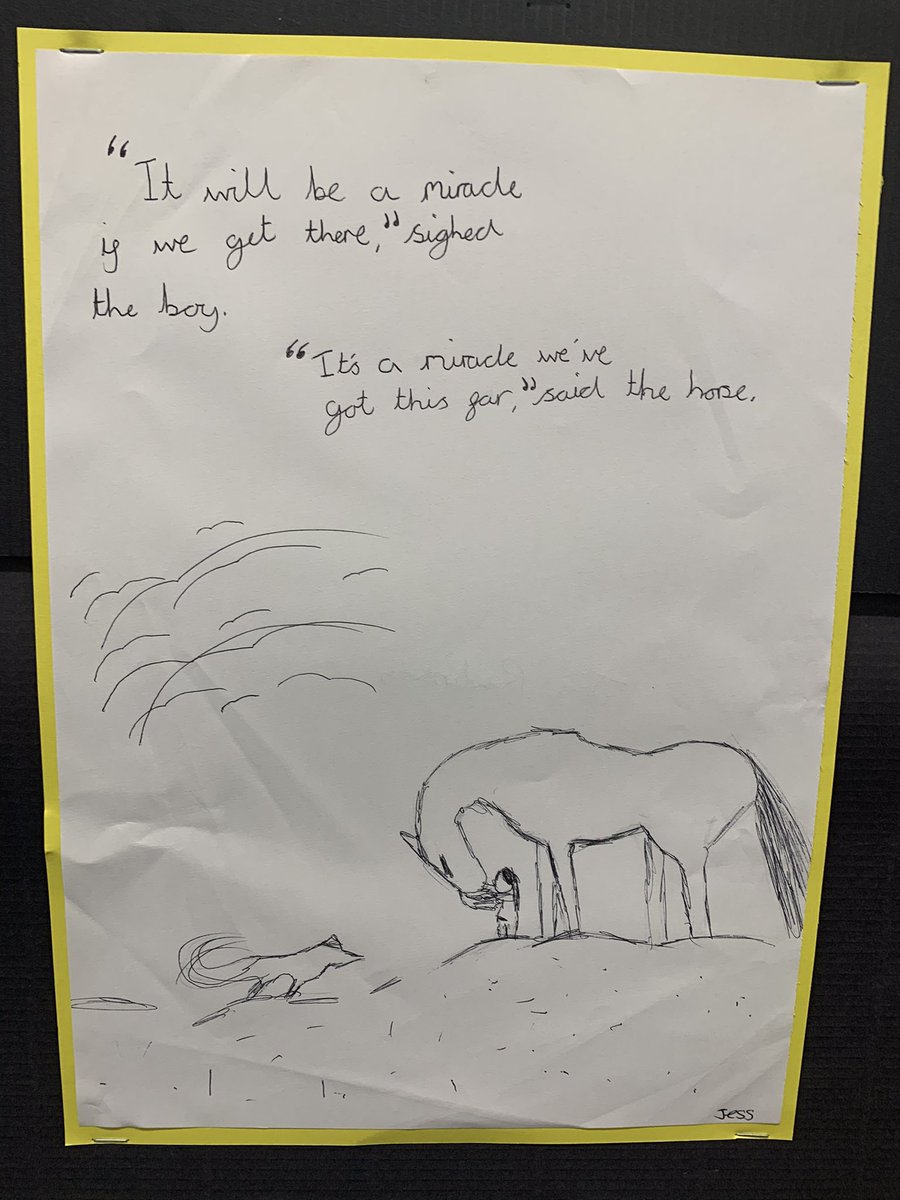 “It will be a miracle
if we get there,” sighed
the boy.
“It's a miracle we've
got this far,” said the horse.
Jess